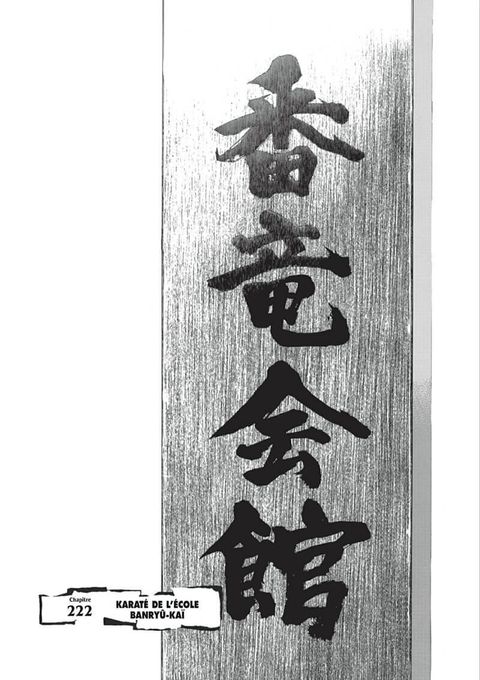 番竜会館
Chapitre
222
KARATÉ DE L'ÉCOLE
BANRYÛ-KAÏ